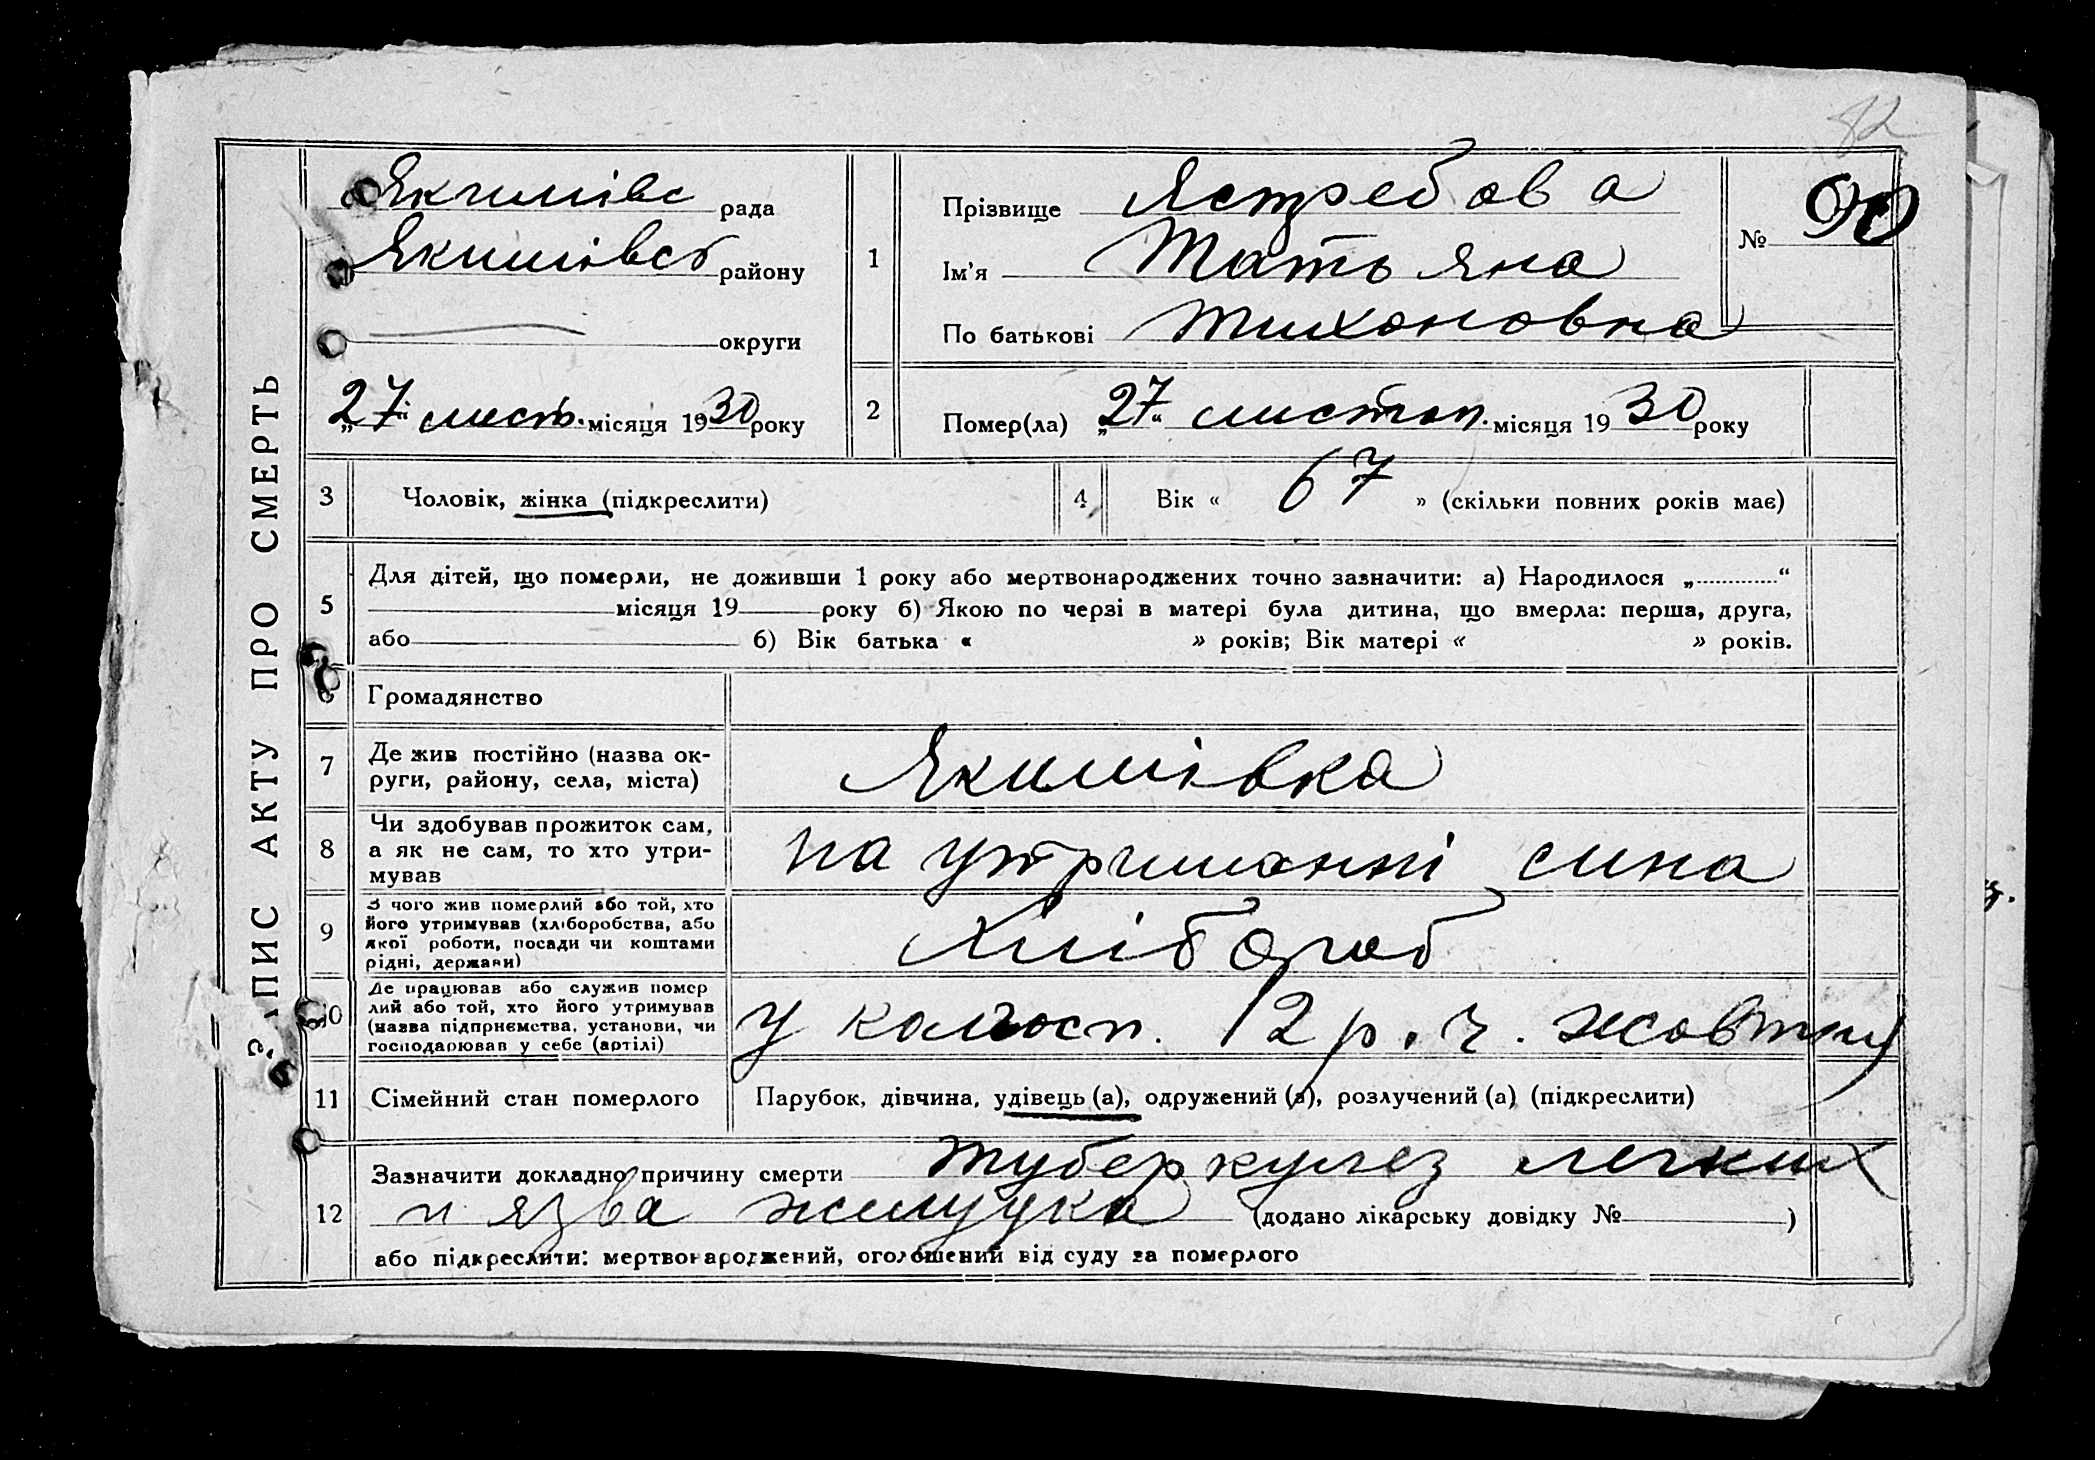 82
ЗАПИС АКТУ ПРО СМЕРТЬ
Якимівс рада
Якимівсь району
округи
„27“ лист. місяця 1930 року
1
Прізвище Ястребова
Ім'я Татьяна
По батькові Тихоновна
№ 90
2
Помер(ла) „27“ листоп. місяця 1930 року
3 Чоловік, жінка (підкреслити)
4 Вік « 67 » (скільки повних років має)
5
Для дітей, що померли, не доживши 1 року або мертвонароджених точно зазначити: а) Народилося „ “
місяця 19 року б) Якою по черзі в матері була дитина, що вмерла: перша, друга,
або б) Вік батька « » років; Вік матері « » років.
6 Громадянство
7
Де жив постійно (назва ок-
руги, району, села, міста)
Якимівка
8
Чи здобував прожиток сам,
а як не сам, то хто утри-
мував
на утриманні сина
9
З чого жив померлий або той, хто
його утримував (хліборобства, або
якої роботи, посади чи коштами
рідні, держави)
Хлібороб
10
Де працював або служив помер
лий або той, хто його утримував
(назва підприємства, установи, чи
господарював у себе (артілі)
у колгосп. 12 р. ч. жовтня
11 Сімейний стан померлого
Парубок, дівчина, удівець (а), одружений (а), розлучений (а) (підкреслити)
12
Зазначити докладно причину смерти туберкулез легких
и язва желудка (додано лікарську довідку № )
або підкреслити: мертвонароджений, оголошений від суду за померлого